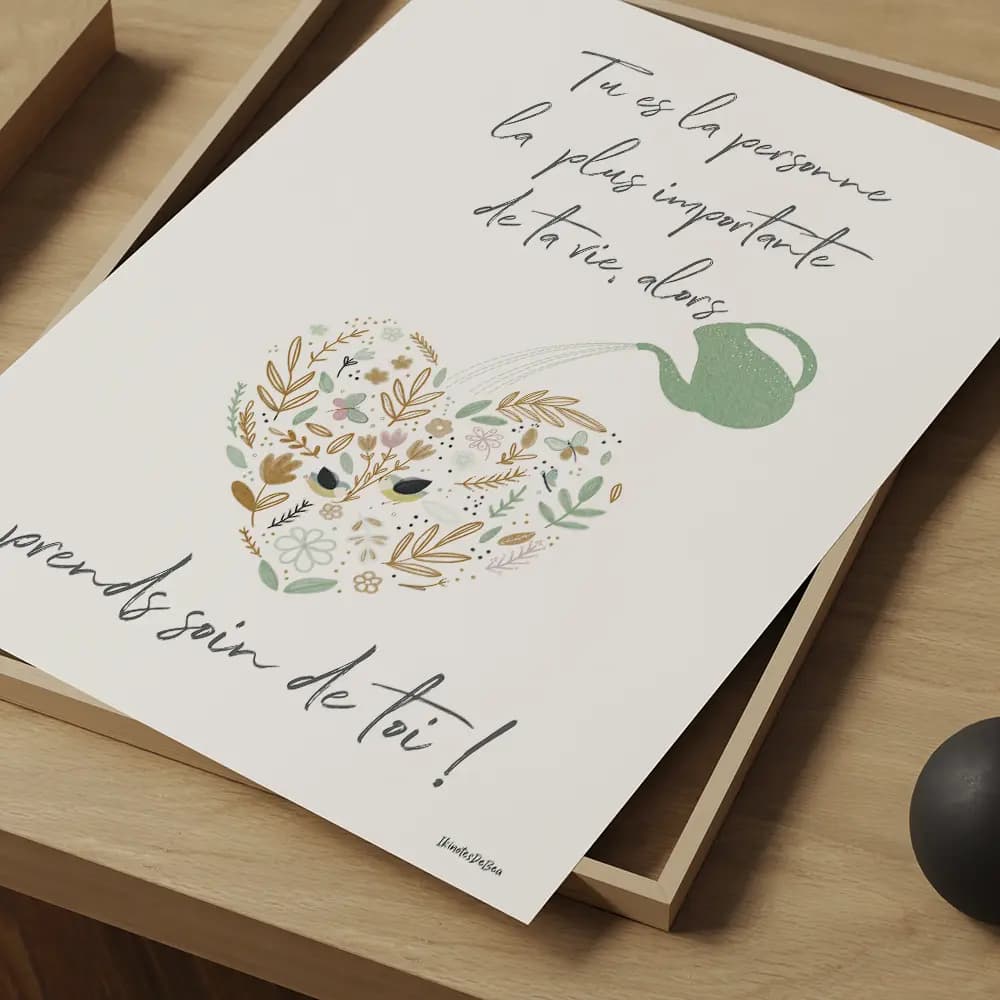 Tu es la personne
la plus importante
de ta vie, alors
prends soin de toi !
IkinotesDeBea